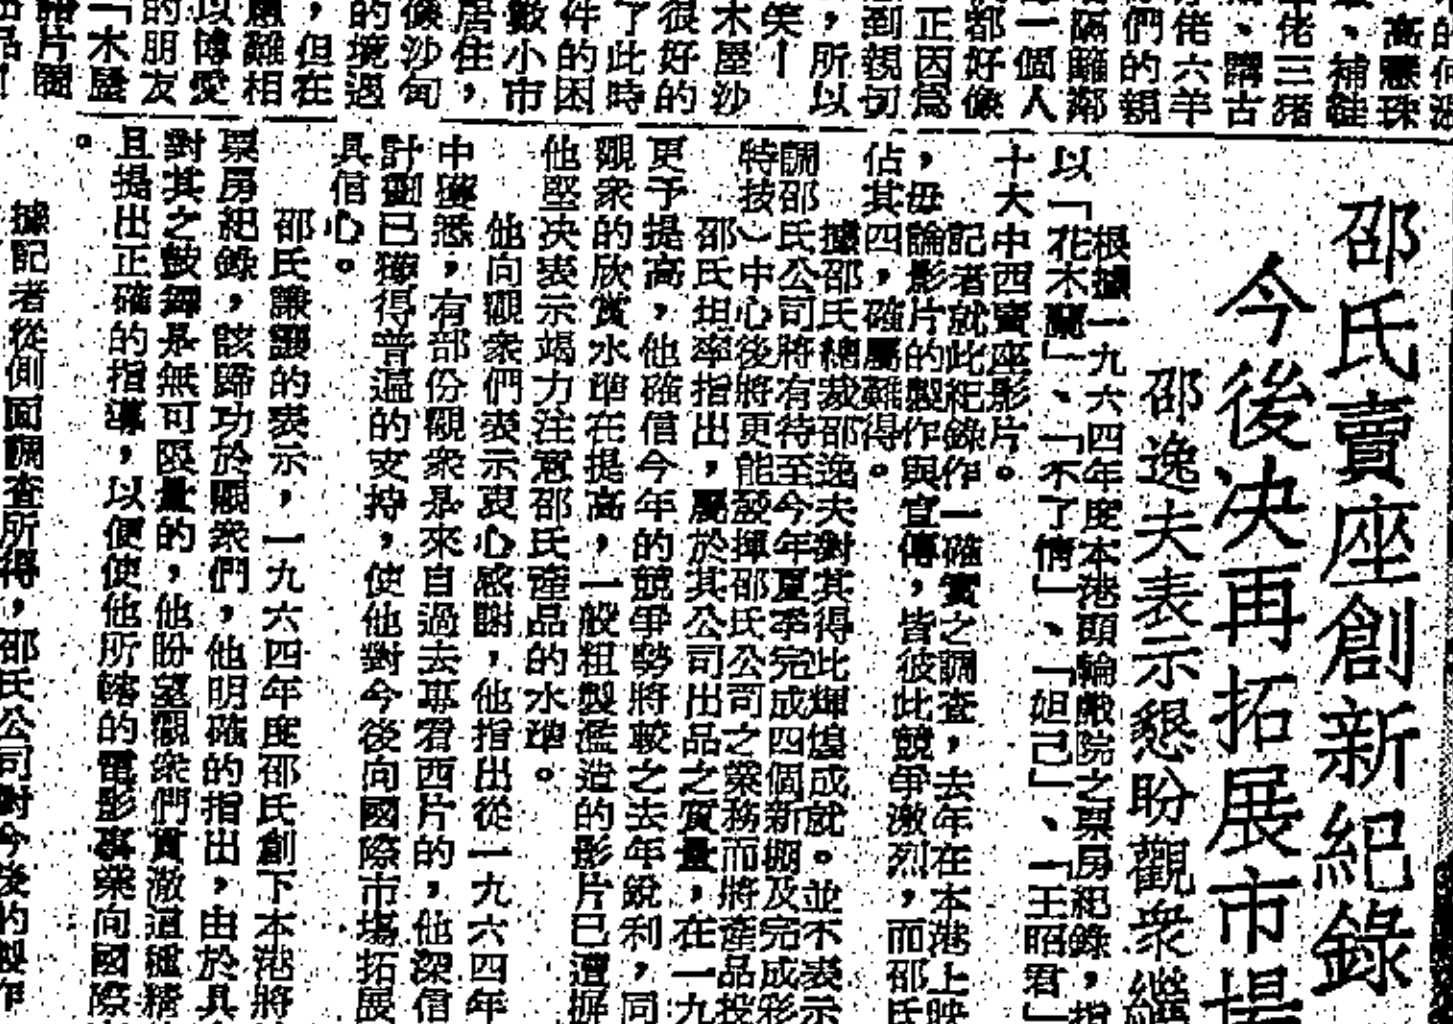 的何
高懸珠
補鞋
佬三豬
謂古
佬六羊
們的親
隔籬鄰
一個人
都好像
正因爲
到親切
，所以
笑！
木屋沙
很好的
了此時
件的困
數小市
居住，
像沙甸
的境遇
，但在
籬相
以博愛
的朋友
「木屋
諸片閣
邵氏賣座創新紀錄
今後决再拓展市場
邵逸夫表示懇盼觀衆繼
根據一九六四年度本港頭輪戲院之票房紀錄，
以「花木蘭」、「不了情」、「妲己」、「王昭君」
十大中西賣座影片。
記者就此紀錄作一確實之調查，去年在本港上映
，毋論影片的製作與宣傳，皆彼此競爭激烈，而邵氏
佔其四，確屬難得。
據邵氏總裁邵逸夫對其得此輝煌成就。並不表示
調邵氏公司將有待至今年夏季完成四個新棚及完成彩
特技）中心後將更能發揮邵氏公司之業務而將產品投
邵氏坦率指出，屬於其公司出品之質量，在一九
更予提高，他確信今年的競爭勢將較之去年銳利，同
觀衆的欣賞水準在提高，一般粗製濫造的影片已遭摒
他堅决表示竭力注意邵氏產品的水準。
他向觀衆們表示衷心感謝，他指出從一九六四年
中獲悉，有部份觀衆是來自過去專看西片的，他深信
計劃已獲得普遍的支持，使他對今後向國際市場拓展
具信心。
邵氏謙讓的表示，一九六四年度邵氏創下本港將
票房紀錄，該歸功於觀衆們，他明確的指出，由於具
對其之鼓舞是無可限量的，他盼望觀衆們貫澈這種精
且提出正確的指導，以便使他所轄的電影事業向國際
。
據記者從側面調查所得，邵氏公司對今後的製作